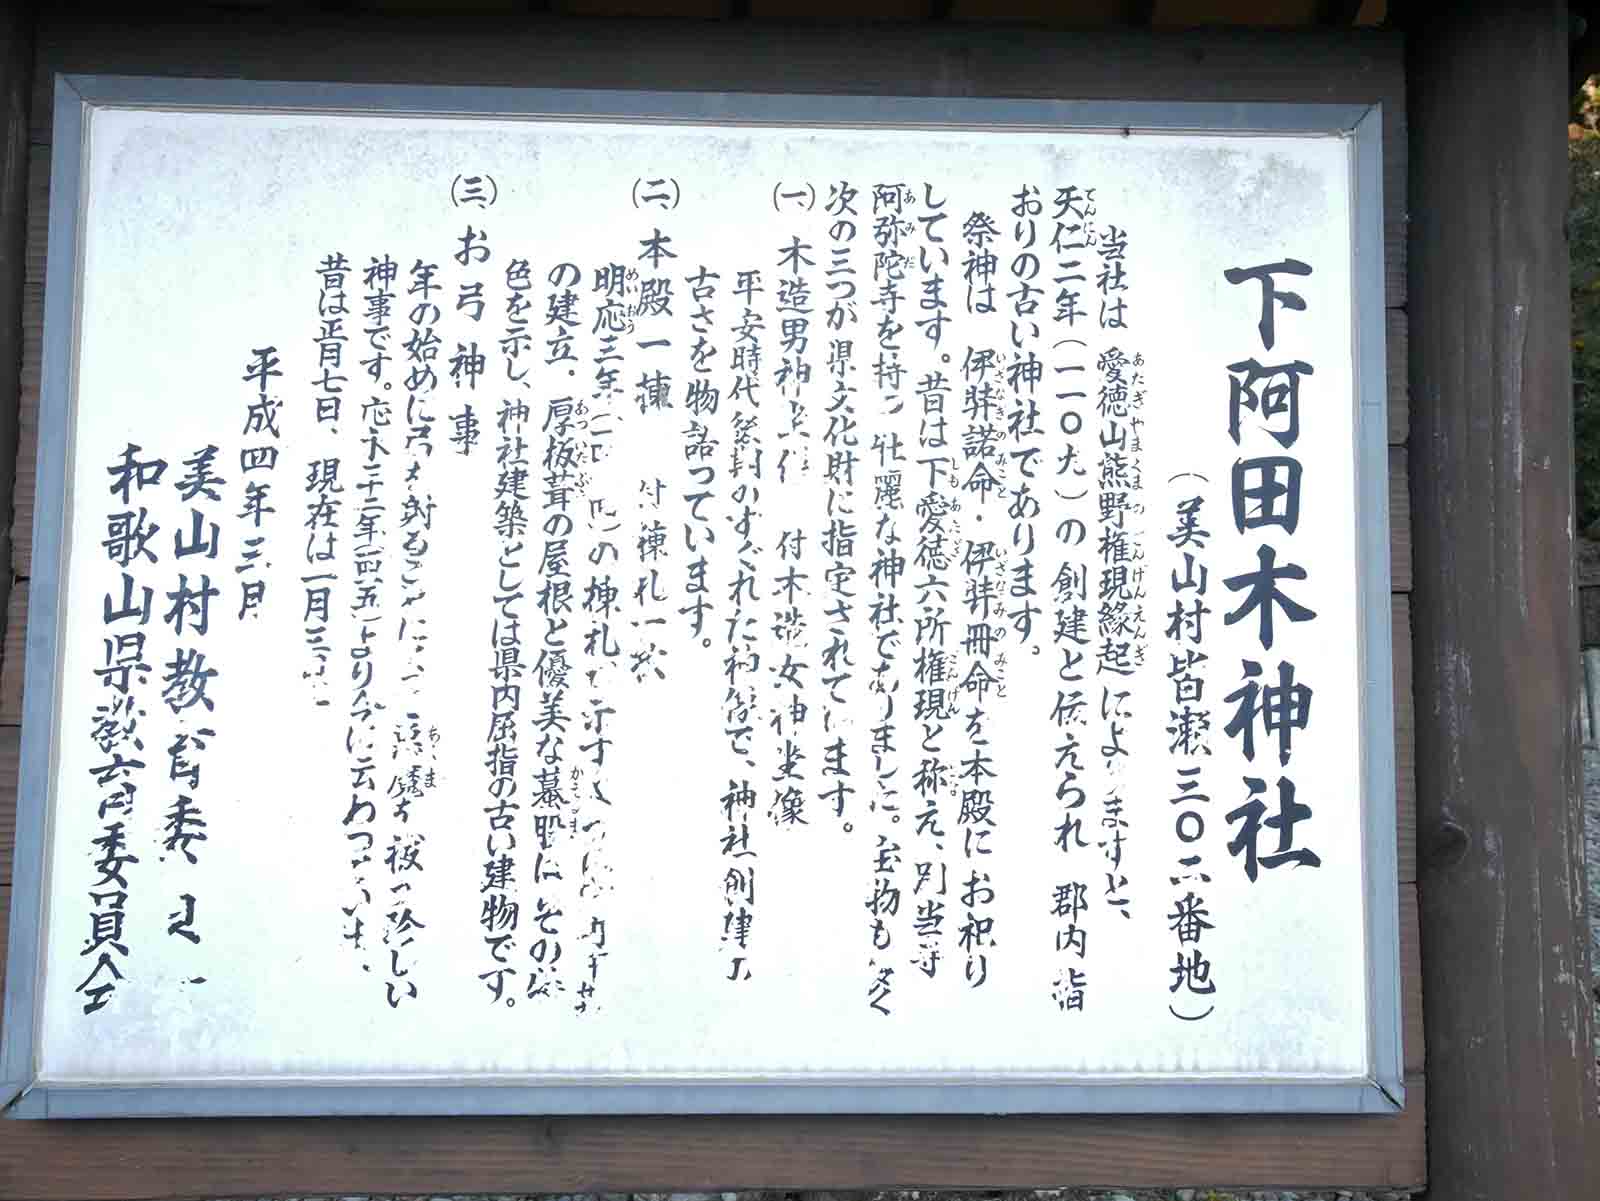 下阿田木神社
（美山村皆瀬三〇二番地）
当社は 愛徳山熊野権現縁起によりますと、
天仁二年（一一〇九）の創建と伝えられ 郡内指
おりの古い神社であります。
祭神は 伊弉諾命・伊弉冊命を本殿にお祀り
しています。昔は下愛徳六所権現と称え、別当寺
阿弥陀寺を持つ壮麗な神社でありました。宝物も多く
次の三つが県文化財に指定されています。
(一)、木造男神坐像 付木造女神坐像
平安時代 のすぐれた神像で、神社創建の
古さを物語っています。
(二)、本殿一棟 付棟札一枚
明応三年 の棟札 示す
の建立．厚板葺の屋根と優美な蟇股はその
色を示し、神社建築としては県内屈指の古い建物です。
(三)、お弓神事
年の始めに弓を射る を祓う珍しい
神事です。応永三十二年 より今に伝わっています、
昔は正月七日、現在は一月三
平成四年三月
美山村教育委
和歌山県教育委員会